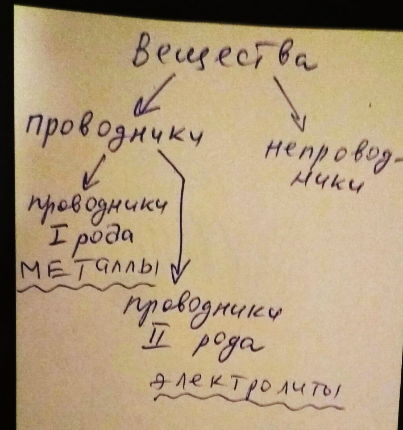 Вещества
проводники
непровод-
ники
проводники
I рода
металлы
проводники
II рода
электролиты